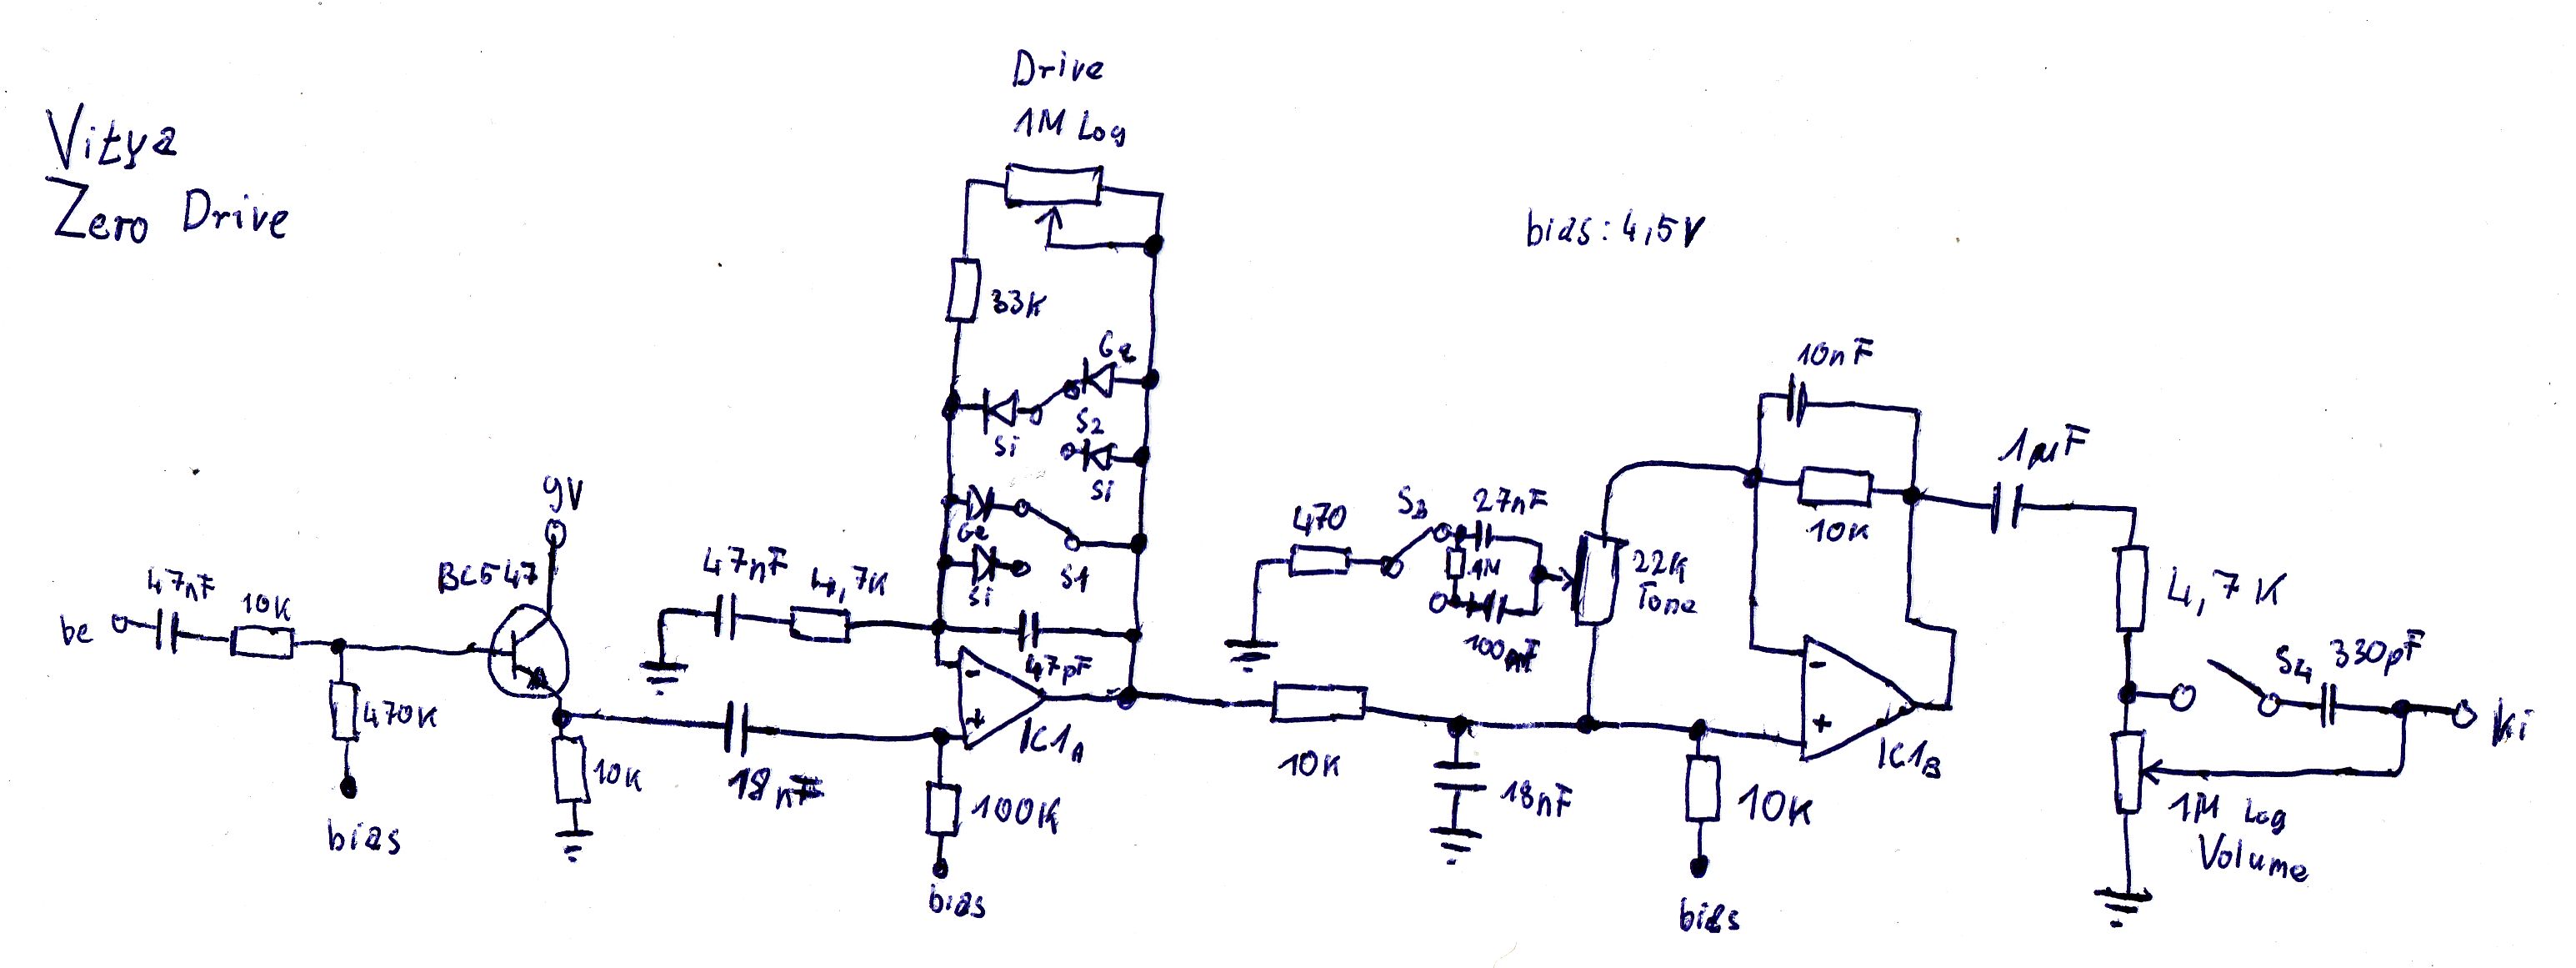 Vitya
Zero Drive
Drive
1M Log
bias: 4,5V
33K
Ge
Si
S2
Si
Ge
Si
S1
47pF
9V
BC547
be
47nF
10K
470K
bias
10K
47nF
4,7K
18nF
-
+
IC1A
100K
bias
470
S3
27nF
1M
22K
Tone
10K
18nF
10K
bias
10nF
10K
-
+
IC1B
1µF
4,7K
S4
330pF
ki
1M Log
Volume